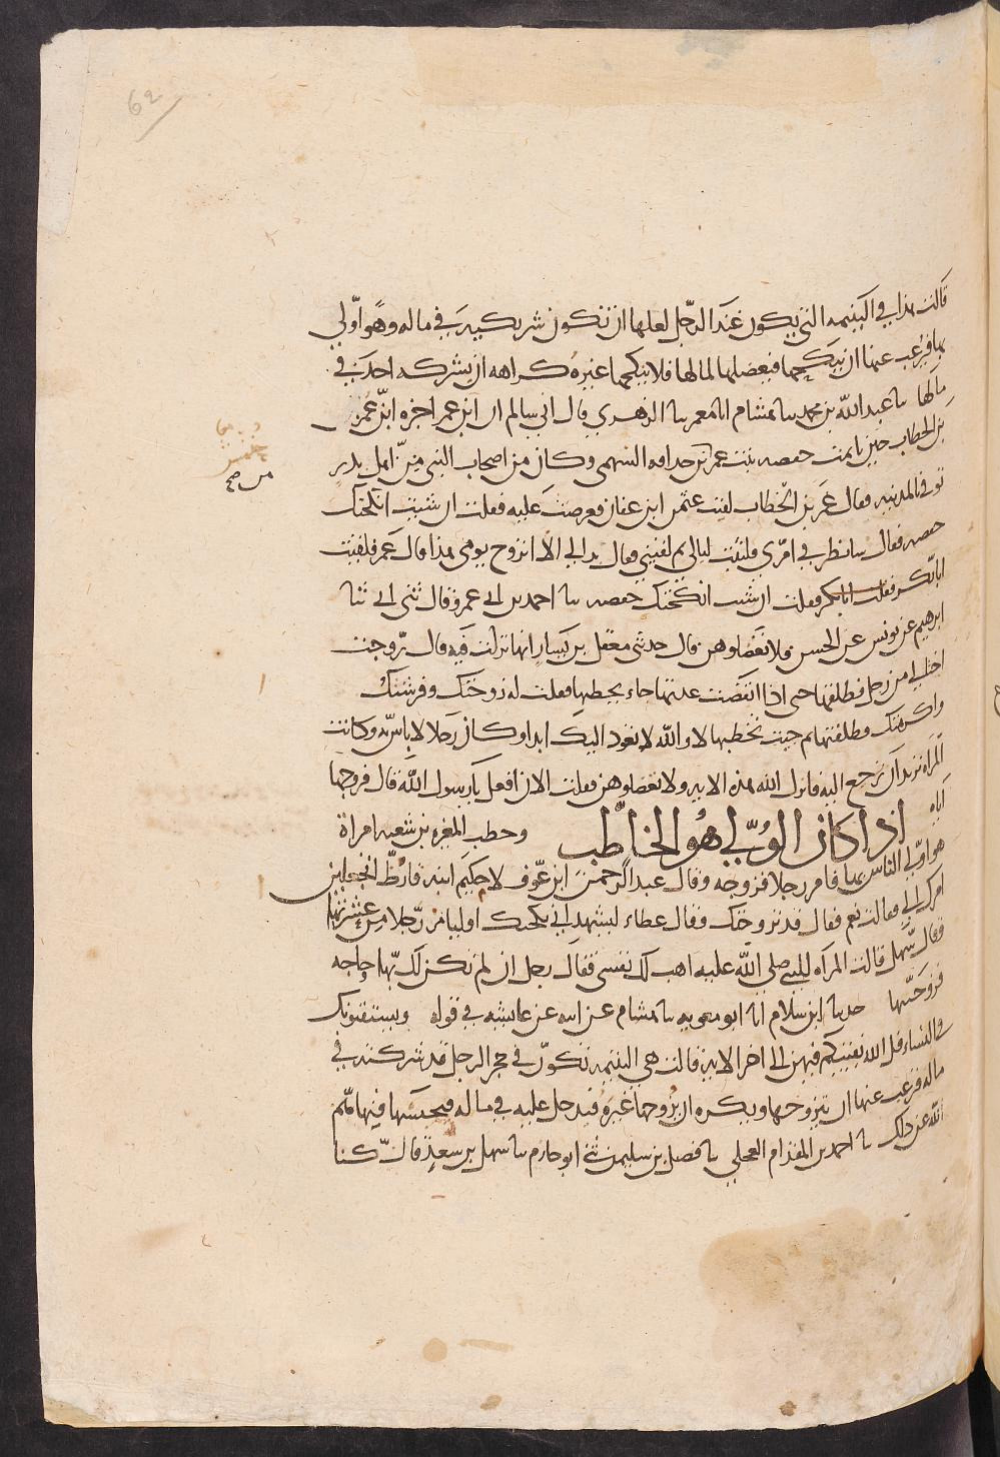 62
قالت هذا في اليتيمه التي يكون عند الرجل لعلها ان تكون شريكته في ماله وهو اولى
بها فيرغب عنها ان ينكحها فيعضلها لمالها فلا ينكحها غيره كراهه ان يشركه احد في
مالها نا عبد الله بن محمد نا هشام انا معمر نا الزهري قال اني سالم ان ابن عمر اخبره ان عمر
بن الخطاب حين تايمت حفصه بنت عمر من حذافه السهمي وكان من اصحاب النبي من اهل بدر
توفي بالمدينه فقال عمر بن الخطاب لقيت عثمن ابن عفان فعرضت عليه فقلت ان شيت انكحتك
حفصه فقال سانظر في امري فلبثت ليالي ثم لقيني فقال بدا لي الا اتزوج يومي هذا قال عمر فلقيت
ابا بكر فقلت ان شيت انكحتك حفصه نا احمد بن ابي عمرو قال ثني ابي ثنا
ابرهيم عن يونس عن الحسن فلا تعضلوهن قال حدثني معقل بن يسار انها نزلت فيه قال زوجت
اختا لي من رجل فطلقها حتى اذا انقضت عدتها جاء يخطبها فقلت له زوجتك وفرشتك
واكرمتك فطلقتها ثم جيت تخطبها لا والله لا تعود اليك ابدا وكان رجلا لا باس به وكانت
المراه تريد ان ترجع اليه فانزل الله هذه الايه ولا تعضلوهن فقلت الان افعل يا رسول الله قال فزوجها
اياه اذا كان الولي هو الخاطب وخطب المغيره بن شعبه امراة
هو اولى الناس بها فامر رجلا فزوجه وقال عبد الرحمن ابن عوف لام حكيم ابنه قارظ اتجعلين
امرك الي فقالت نعم فقال قد تزوجتك فقال عطاء ليشهد اني نكحتك او ليامر رجلا من عشيرتها
فقال سهل قالت المراه للنبي صلى الله عليه اهب لك نفسي فقال رجل ان لم تكن لك بها حاجه
فزوجنيها حدثنا ابن سلام انا ابو معويه نا هشام عن ابيه عن عايشه في قوله ويستفتونك
في النساء قل الله يفتيكم فيهن الى اخر الايه قالت هي اليتيمه تكون في حجر الرجل قد شركته في
ماله فيرغب عنها ان يتزوجها ويكره ان يزوجها غيره فيدخل عليه في ماله فيحبسها فنهاهم
الله عن ذلك نا احمد بن المقدام العجلي نا فضيل بن سليمن ثنا ابو حازم نا سهل بن سعد قال كنا